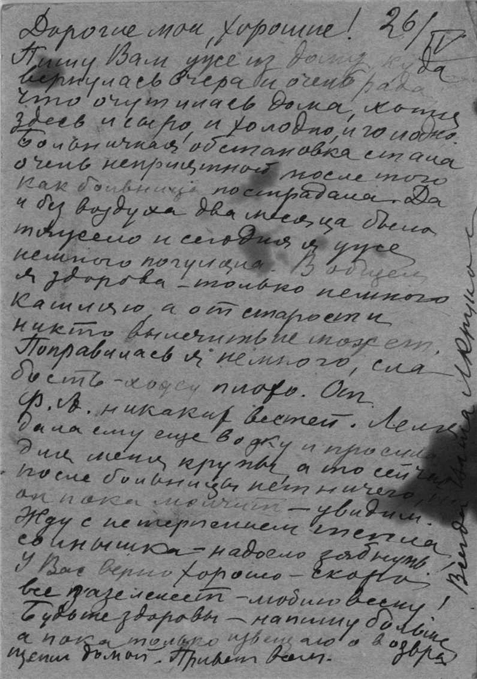 Дорогие мои, хорошие! 26/IV
Пишу Вам уже из дому, куда
вернулась вчера и очень рада
что очутилась дома, хотя
здесь и сыро, и холодно, и голодно.
Больничная обстановка стала
очень неприятной после того
как больница пострадала. Да
и без воздуха два месяца было
тяжело и сегодня я уже
немного погуляла. В общем
я здорова – только немного
кашляю, а от старости
никто вылечить не может.
Поправилась я немного, сла
бость – хожу плохо. От
Ф.А. никаких вестей. Леля
дала ему еще водку и просила
для меня крупы, а то сейчас
после больницы нет ничего,
он пока молчит – увидим.
Жду с нетерпением тепла,
солнышка – надоело зябнуть.
У Вас верно хорошо – скоро
все зазеленеет – люблю весну!
Будьте здоровы – напишу больше
а пока только извещаю о возвра
щении домой. Привет всем.
Всегда Ваша